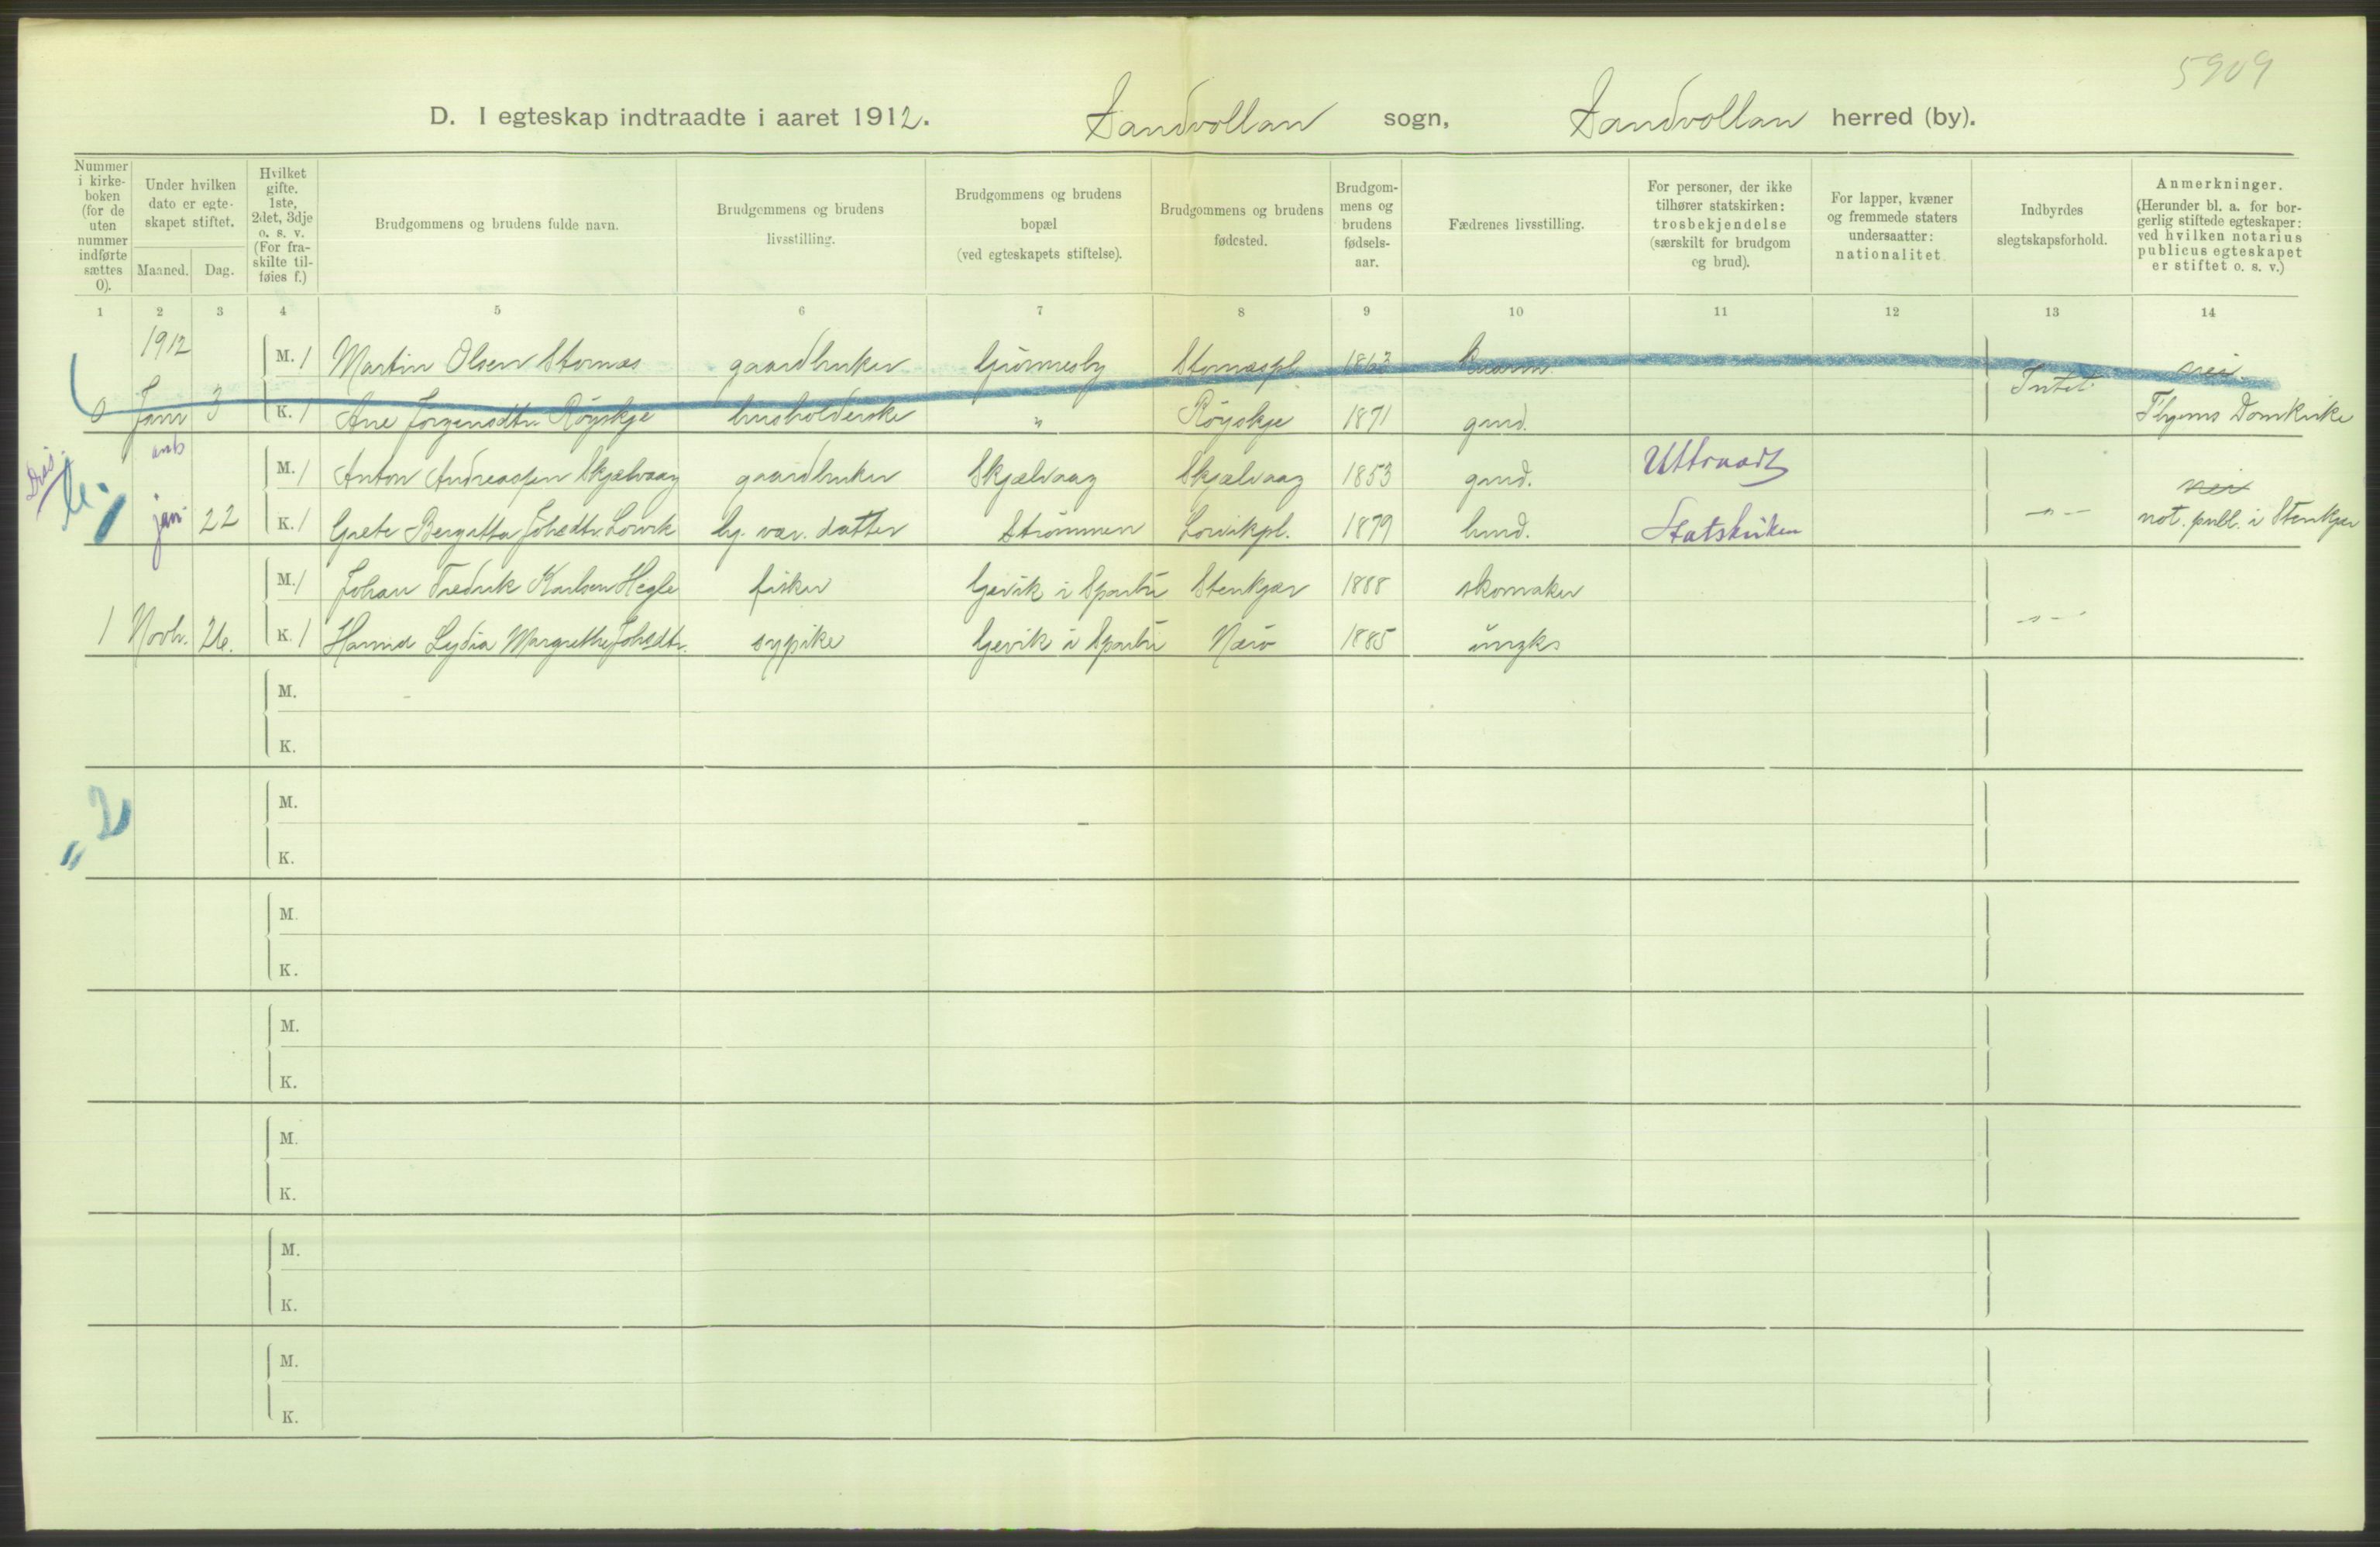 5909
D. I egteskap indtraadte i aaret 1912. Sandvollan sogn, Sandvollan herred (by).
Nummer i kirkeboken (for de uten nummer indførte sættes 0).
Under hvilken dato er egteskapet stiftet.
Maaned. Dag.
Hvilket gifte. 1ste, 2det, 3dje o. s. v. (For fraskilte tilføies f.)
Brudgommens og brudens fulde navn.
Brudgommens og brudens livsstilling.
Brudgommens og brudens bopæl (ved egteskapets stiftelse).
Brudgommens og brudens fødested.
Brudgommens og brudens fødselsaar.
Fædrenes livsstilling.
For personer, der ikke tilhører statskirken: trosbekjendelse (særskilt for brudgom og brud).
For lapper, kvæner og fremmede staters undersaatter: nationalitet
Indbyrdes slegtskapsforhold.
Anmerkninger. (Herunder bl. a. for borgerlig stiftede egteskaper: ved hvilken notarius publicus egteskapet er stiftet o. s. v.)
1 2 3 4 5 6 7 8 9 10 11 12 13 14
1912
M. 1 Martin Olsen Stornæs gaardbruker Stornæspl. 1863 nei
0 Janr 3 K. 1 Ane Jørgensdtr. Røyskje husholderske " Røyskje 1871 gmd. Intet Thjems Domkirke
M. 1 Anton Andreassen Skjælvaag gaardbruker Skjælvaag Skjælvaag 1853 gmd. Uttraadt nei
jan 22 K. 1 Grete Bergitta Johsdtr. Lorvik datter Strømmen Lorvikpl. 1879 husmd. Statskirken -"- not. publ. i Stenkjær
M. 1 Johan Fredrik Karlsen Hegle fisker Gjævik i Sparbu Stenkjær 1888 skomaker
1 Novbr. 26. K. 1 Lydia Margrethe Johsdtr. sypike Gjævik i Sparbu Nærø 1885 ungk. -"-
M.
K.
M.
" 2
K.
M.
K.
M.
K.
M.
K.
M.
K.
M.
K.